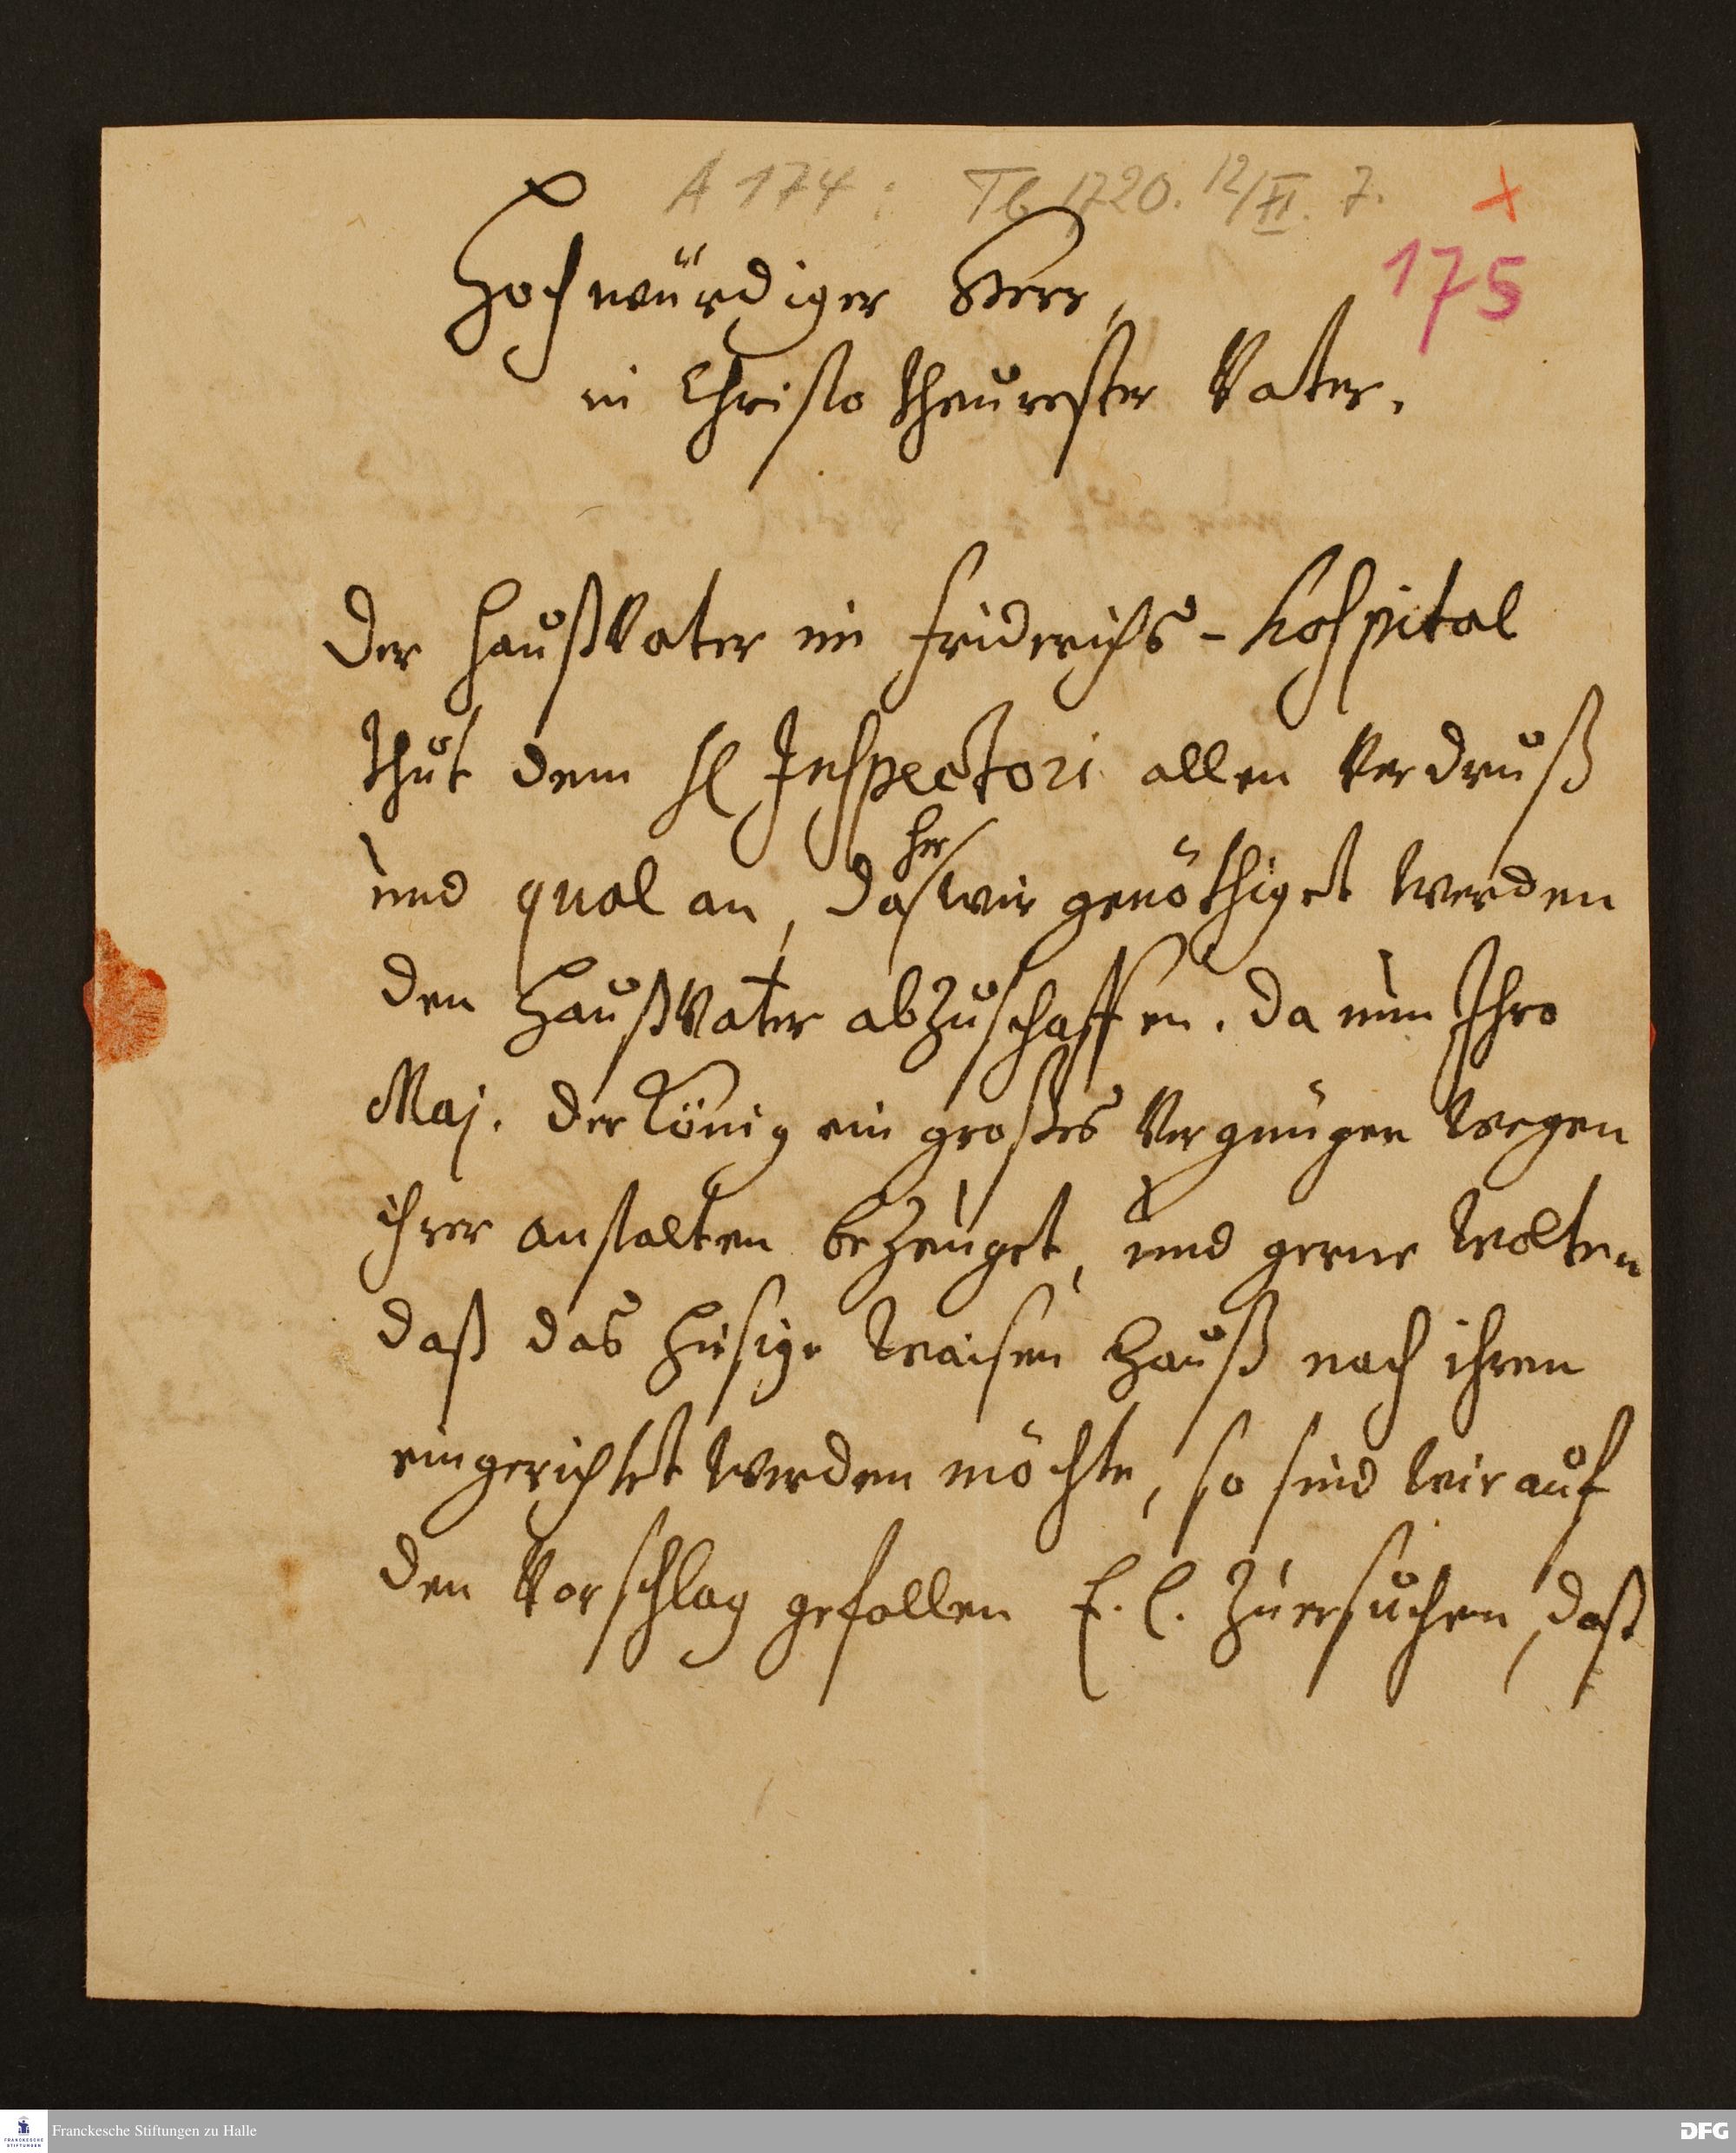 A 174: Tb 1720. 12/II. 7. +
175
Hochwürdiger Herr,
in Christo theurester Vater.
Der Haußvater im Friderichs-Hospital
thut dem H Inspectori allen Verdruß
und qual an, daher wir genöthiget werden
den Haußvater abzuschaffen. Da nun Ihro
Maj. der König ein großes Vergnügen wegen
ihrer anstalten bezeuget, und gerne wolten
daß das hiesige Waisen Hauß nach ihren
eingerichtet werden möchte, so sind wir auf
den Vorschlag gefallen E. E. zu ersuchen, daß
Franckesche Stiftungen zu Halle
DFG
FRANCKESCHE
STIFTUNGEN